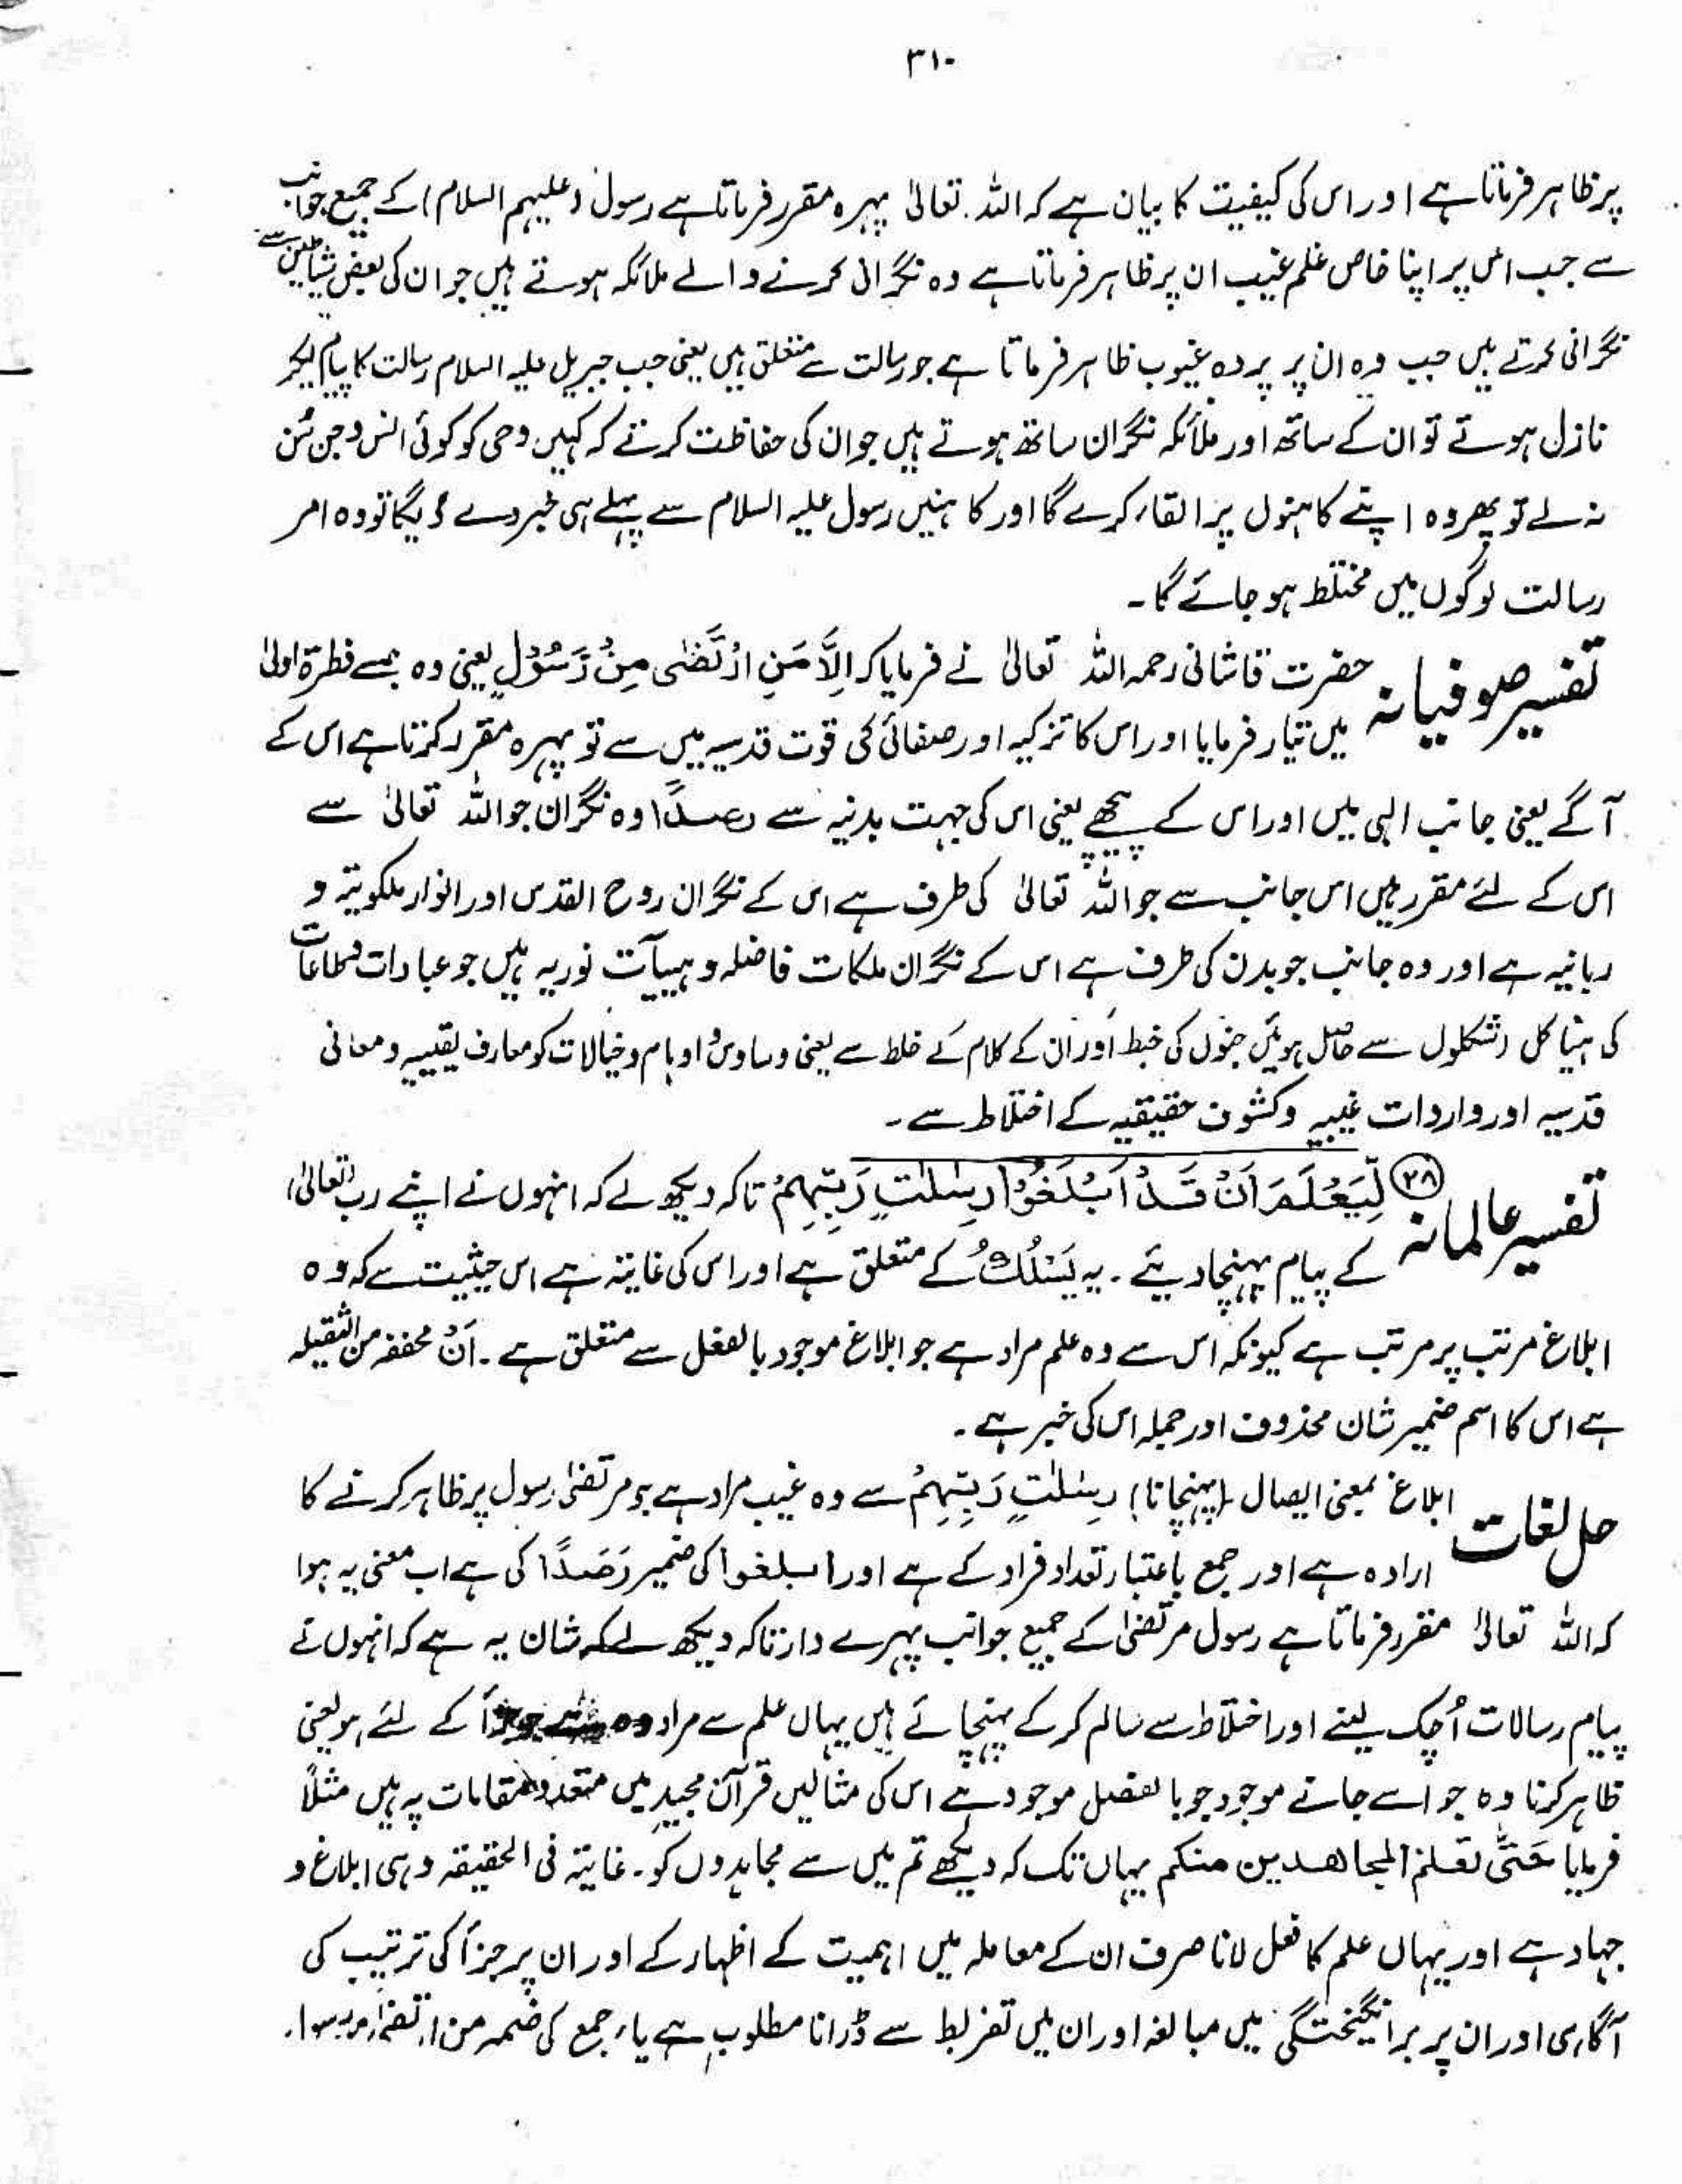 ۳۱۰
پر ظاہر فرماتا ہے اور اس کی کیفیت کا بیان ہے کہ اللہ تعالیٰ پہرہ مقرر فرماتا ہے رسول (علیہم السلام) کے جمیع جوانب
سے جب اس پر اپنا خاص علم غیب ان پر ظاہر فرماتا ہے وہ نگرانی کرنے والے ملائکہ ہوتے ہیں جو ان کی بعض شیاطین سے
نگرانی کرتے ہیں جب وہ ان پر پردہ غیوب ظاہر فرماتا ہے جو رسالت سے متعلق ہیں یعنی جب جبریل علیہ السلام رسالت کا پیام لیکر
نازل ہوتے تو ان کے ساتھ اور ملائکہ نگران ساتھ ہوتے ہیں جو ان کی حفاظت کرتے کہ کہیں وحی کو کوئی انس و جن سُن
نہ لے تو پھر وہ اپنے کاہنوں پر القاء کرے گا اور کاہنیں رسول علیہ السلام سے پہلے ہی خبر دے دیگا تو وہ امر
رسالت لوگوں میں مختلط ہو جائے گا۔
تفسیر صوفیانہ حضرت قاشانی رحمہ اللہ تعالیٰ نے فرمایا کہ اِلَّا مَنِ ارْتَضٰی مِنْ رَّسُوْلٍ یعنی وہ جسے فطرۃ اولیٰ
میں تیار فرمایا اور اس کا تزکیہ اور صفائی کی قوت قدسیہ میں سے تو پہرہ مقرر کرتا ہے اس کے
آگے یعنی جانب الہی میں اور اس کے پیچھے یعنی اس کی جہت بدنیہ سے رصدًا وہ نگران جو اللہ تعالیٰ سے
اس کے لئے مقرر ہیں اس جانب سے جو اللہ تعالیٰ کی طرف ہے اس کے نگران روح القدس اور انوار ملکوتیہ و
ربانیہ ہے اور وہ جانب جو بدن کی طرف ہے اس کے نگران ملکات فاضلہ و ہیبآت نوریہ ہیں جو عبادات و طاعات
کی ہیناکل (شکلوں سے حاصل ہوئیں جنوں کی خبط اور ان کے کلام کے خلط سے یعنی وساوس و اوہام و خیالات کو معارف یقینیہ و معانی
قدسیہ اور واردات غیبیہ و کشوف حقیقیہ کے اختلاط سے۔
تفسیر عالمانہ (۲۸) لِّیَعْلَمَ اَنْ قَدْ اَبْلَغُوْا رِسٰلٰتِ رَبِّهِمْ تاکہ دیکھ لے کہ انہوں نے اپنے رب (تعالیٰ)
کے پیام پہنچا دیئے۔ یہ یَسْلُكُ کے متعلق ہے اور اس کی غایتہ ہے اس حیثیت سے کہ وہ
ابلاغ مرتب پر مرتب ہے کیونکہ اس سے وہ علم مراد ہے جو ابلاغ موجود بالفعل سے متعلق ہے۔ اَنْ مخففہ من الثقیلہ
ہے اس کا اسم ضمیر شان محذوف اور جملہ اس کی خبر ہے۔
حل لغات ابلاغ بمعنی ایصال (پہنچانا) رِسٰلٰتِ رَبِّهِمْ سے وہ غیب مراد ہے جو مرتضیٰ رسول پر ظاہر کرنے کا
ارادہ ہے اور جمع باعتبار تعداد افراد کے ہے اور ابلغوا کی ضمیر رَصَدًا کی ہے اب معنی یہ ہوا
کہ اللہ تعالیٰ مقرر فرماتا ہے رسول مرتضیٰ کے جمیع جوانب پہرے دار تاکہ دیکھ لے کہ شان یہ ہے کہ انہوں نے
پیام رسالات اُچک لینے اور اختلاط سے سالم کر کے پہنچائے ہیں یہاں علم سے مراد وہ ہے جو جزأ کے لئے ہو یعنی
ظاہر کرنا وہ جو اسے جانے موجود جو بالفضل موجود ہے اس کی مثالیں قرآن مجید میں متعدد مقامات پہ ہیں مثلاً
فرمایا حَتّٰی نَعْلَمَ المجاهدین منکم یہاں تک کہ دیکھے تم میں سے مجاہدوں کو۔ غایتہ فی الحقیقہ وہی ابلاغ و
جہاد ہے اور یہاں علم کا فعل لانا صرف ان کے معاملہ میں اہمیت کے اظہار کے اور ان پر جزأ کی ترتیب کی
آگاہی اور ان پر برانگیختگی میں مبالغہ اور ان میں تفریط سے ڈرانا مطلوب ہے یا جمع کی ضمیر من ارتضیٰ